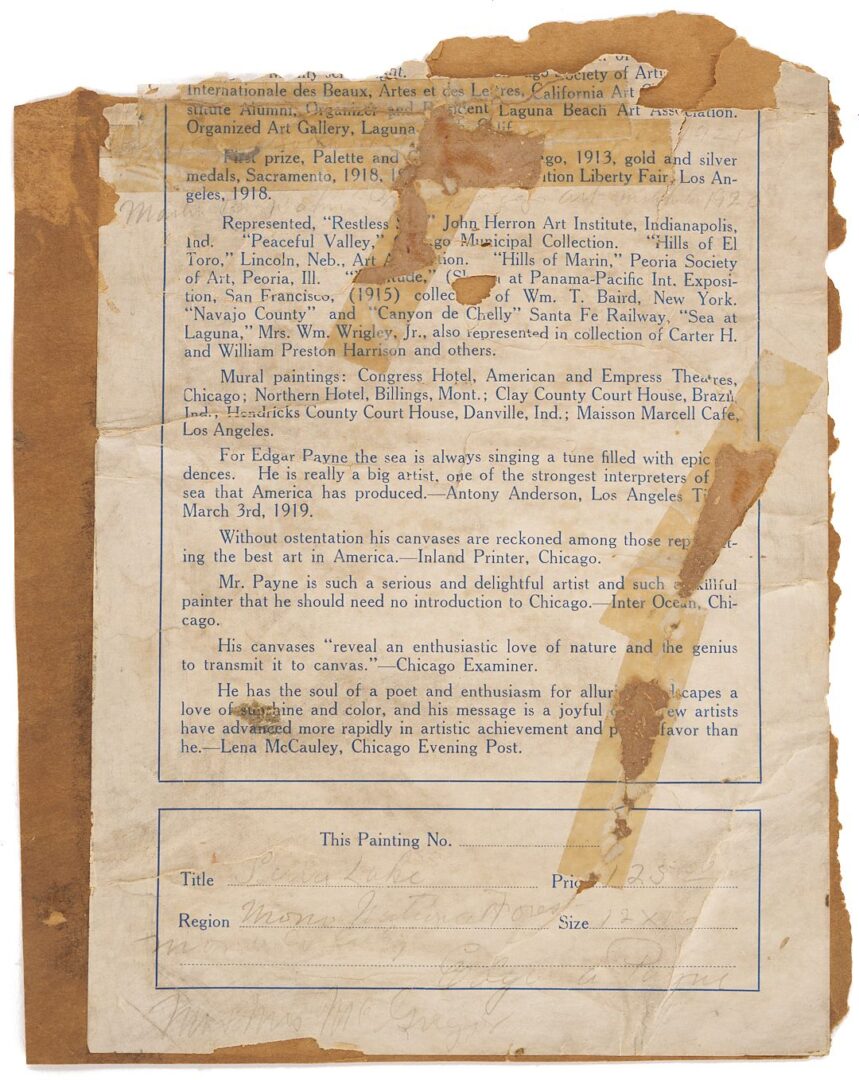 Society of Art
Internationale des Beaux, Artes et des Le res, California Art
stitute Alumni, Organizer and President Laguna Beach Art Association.
Organized Art Gallery, Laguna Calif.
First prize, Palette and ago, 1913, gold and silver
medals, Sacramento, 1918, tion Liberty Fair, Los An-
geles, 1918.
Represented, “Restless John Herron Art Institute, Indianapolis,
Ind. “Peaceful Valley,” ago Municipal Collection. “Hills of El
Toro,” Lincoln, Neb., Art A tion. “Hills of Marin,” Peoria Society
of Art, Peoria, Ill. ude,” (S at Panama-Pacific Int. Exposi-
tion, San Francisco, (1915) collec of Wm. T. Baird, New York.
“Navajo County” and “Canyon de Chelly” Santa Fe Railway, “Sea at
Laguna,” Mrs. Wm. Wrigley, Jr., also represented in collection of Carter H.
and William Preston Harrison and others.
Mural paintings: Congress Hotel, American and Empress Theatres,
Chicago; Northern Hotel, Billings, Mont.; Clay County Court House, Brazil,
Ind.; Hendricks County Court House, Danville, Ind.; Maisson Marcell Cafe,
Los Angeles.
For Edgar Payne the sea is always singing a tune filled with epic
dences. He is really a big artist, one of the strongest interpreters of
sea that America has produced.—Antony Anderson, Los Angeles Ti
March 3rd, 1919.
Without ostentation his canvases are reckoned among those rep t-
ing the best art in America.—Inland Printer, Chicago.
Mr. Payne is such a serious and delightful artist and such a skillful
painter that he should need no introduction to Chicago.—Inter Ocean, Chi-
cago.
His canvases “reveal an enthusiastic love of nature and the genius
to transmit it to canvas.”—Chicago Examiner.
He has the soul of a poet and enthusiasm for allur dscapes a
love of sunshine and color, and his message is a joyful ew artists
have advanced more rapidly in artistic achievement and p favor than
he.—Lena McCauley, Chicago Evening Post.
This Painting No.
Title Lake Price 125
Region Mono National Forest Size 12 x
Edgar A Payne